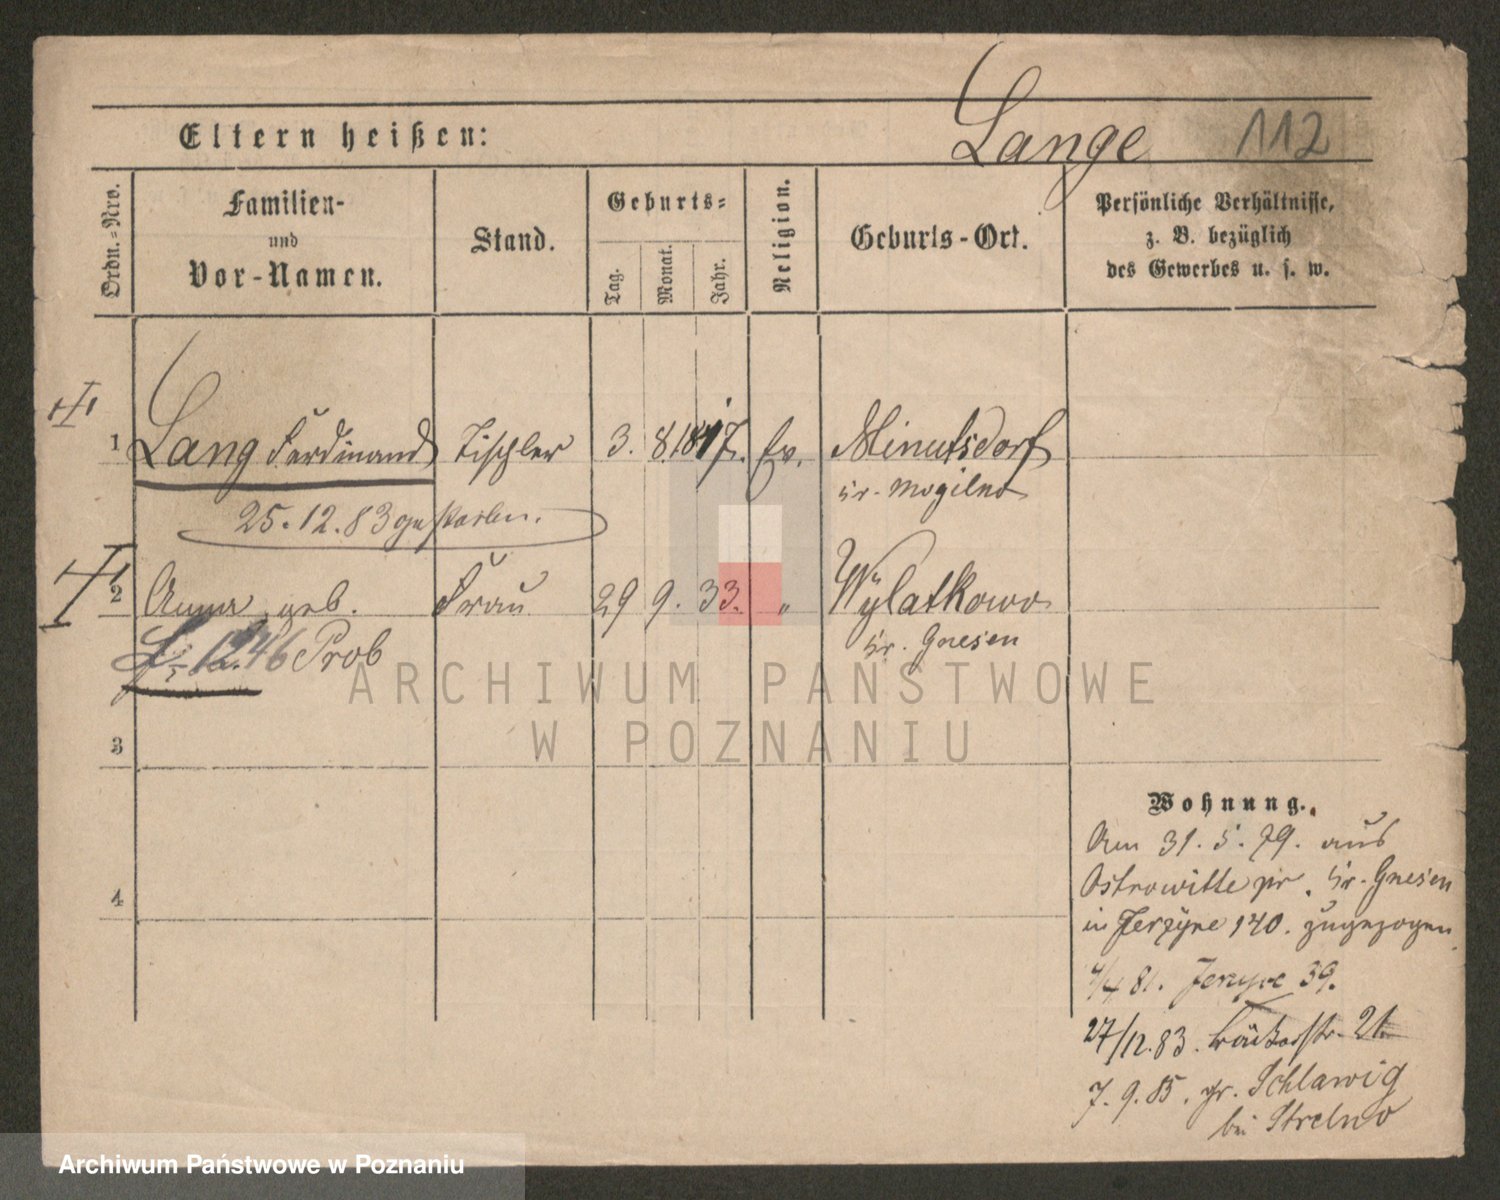 Eltern heißen:
Lange 112
Ordn.-Nro.
Familien-
und
Vor-Namen.
Stand.
Geburts-
Tag.
Monat.
Jahr.
Religion.
Geburts-Ort.
Persönliche Verhältnisse,
z. B. bezüglich
des Gewerbes u. s. w.
1 Lang Ferdinand Tischler 3. 8. 1817. Ev. Minutsdorf
Kr. Mogilno
25.12.83 gestorben.
2 Anna geb. Frau 29 9. 33. " Wylatkowo
Prob
Kr. Gnesen
3
4
Wohnung.
Am 31. 5. 79. aus
Ostrowitte pr. Kr. Gnesen
in Jerzyce 140. zugezogen
4/4 81. Jerzyce 39.
27/12.83. 21.
7. 9. 85. gr. Schlawig
bei Strelno
ARCHIWUM PAŃSTWOWE
W POZNANIU
Archiwum Państwowe w Poznaniu